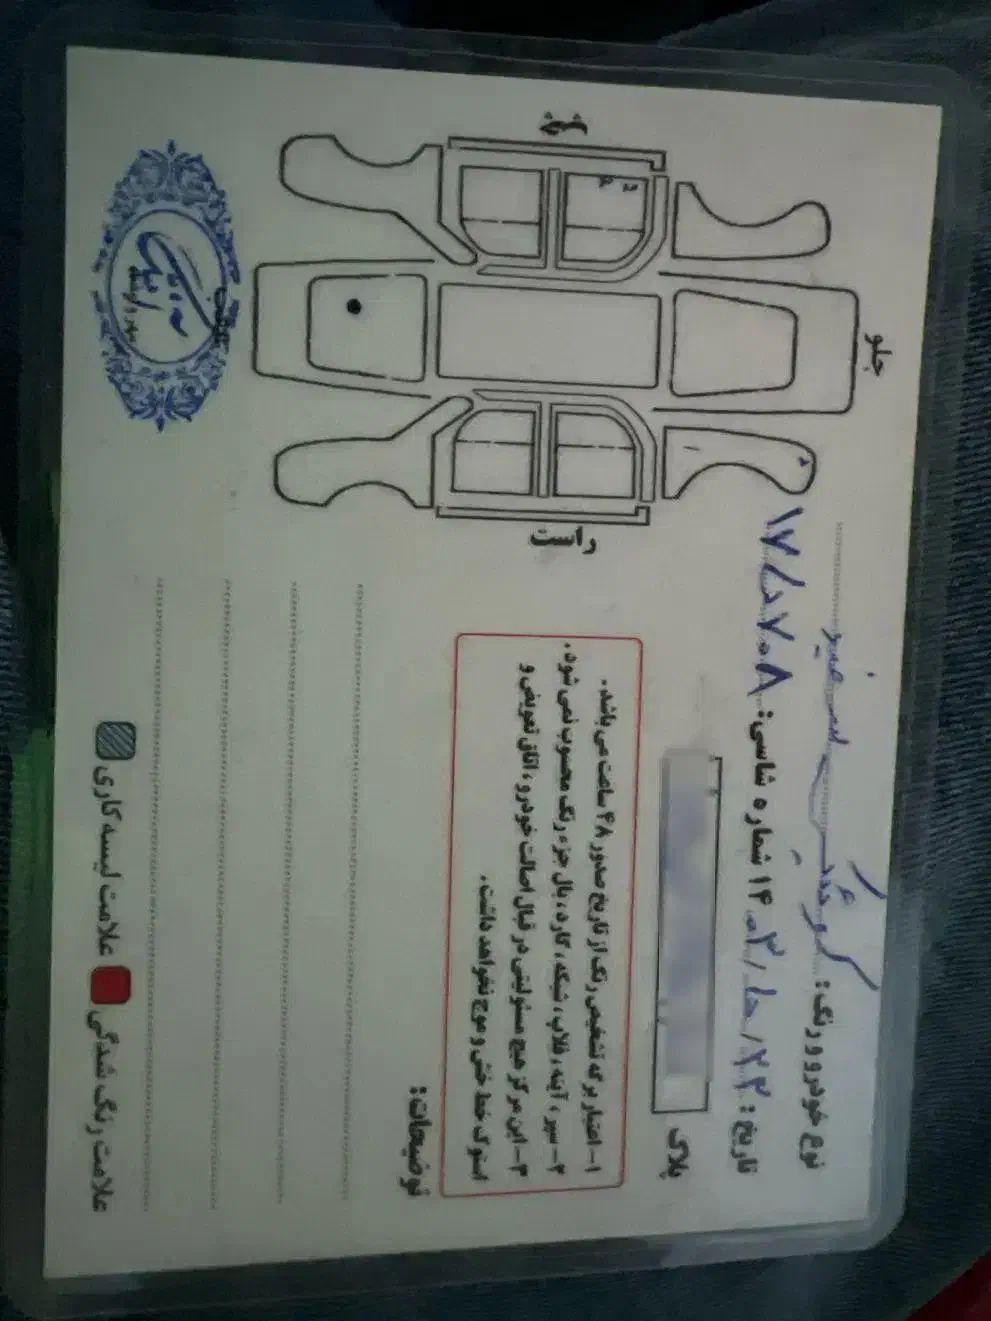 نوع خودرو و رنگ:
تاریخ: ۱۴۰۳/۱۰/۲۲ شماره شاسی:
پلاک
۱- اعتبار برگه تشخیص رنگ از تاریخ صدور ۴۸ ساعت می باشد.
۲- سپر، آینه، قلاب، شبکه، کارد، بال جزء رنگ محسوب نمی شود.
۳- این مرکز هیچ مسئولیتی در قبال اصالت خودرو، اتاق تعویض و
استوک خط خشی و موج نخواهد داشت.
توضیحات:
علامت رنگ شدگی علامت لیسه کاری
جلو
راست
چپ
عقب
مهر و امضا